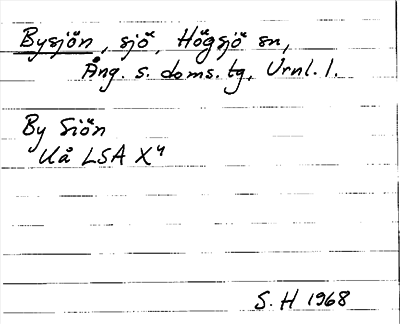 Bysjön, sjö, Högsjö sn,
Ång. s. doms. tg, Urnl. l.
By Siön
Uå LSA X4
S. H 1968